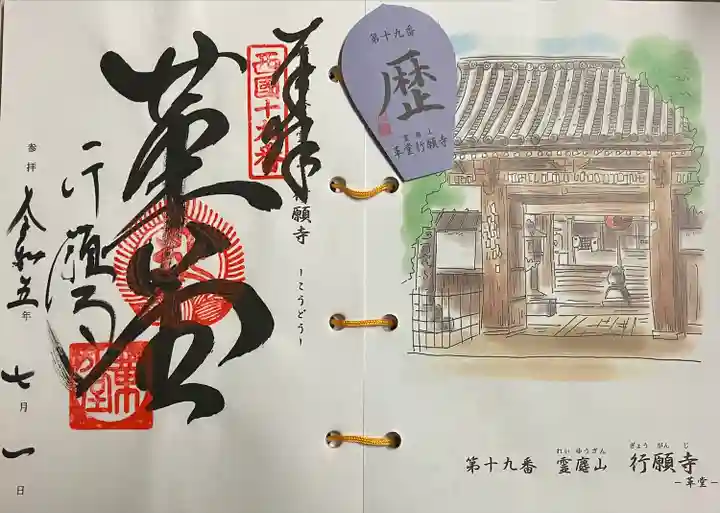 奉拝
西國十九番
行願寺
-こうどう-
革堂
行願寺
革堂
参拝 令和五年 七月 一日
第十九番
歴
革堂行願寺
第十九番 霊麀山 行願寺
れいゆうざん ぎょうがんじ
-革堂-